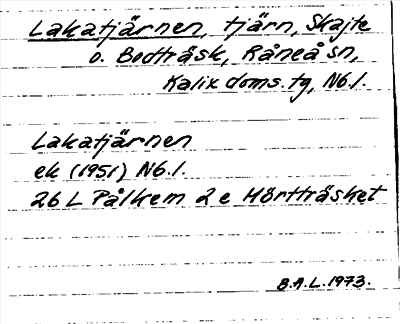 Lakatjärnen, tjärn, Skajte
o. Bodträsk, Råneå sn,
Kalix doms. tg, Nb.l.
Lakatjärnen
ek (1951) Nb.l.
26 L Pålkem 2 e Mörtträsket
B.A.L. 1973.